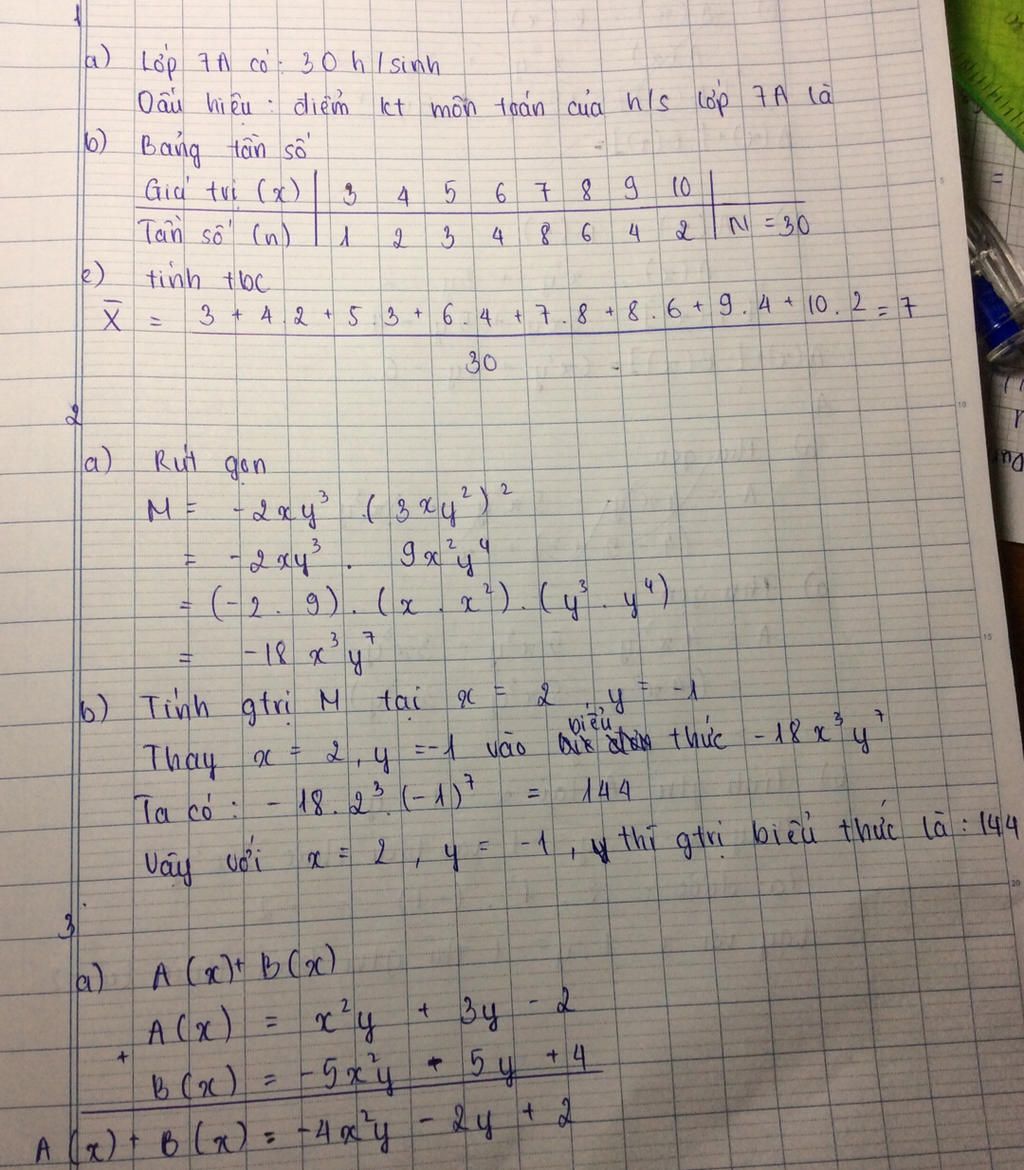 1
a) Lớp 7A có: 30 h/sinh
Dấu hiệu: điểm kt môn toán của h/s lớp 7A là
b) Bảng tần số
Giá trị (x) | 3 4 5 6 7 8 9 10 |
Tần số (n) | 1 2 3 4 8 6 4 2 | N = 30
c) tính tbc
X̄ = 3 + 4.2 + 5.3 + 6.4 + 7.8 + 8.6 + 9.4 + 10.2 = 7
30
2
a) Rút gọn
M = -2xy³ . (3xy²)²
= -2xy³ . 9x²y⁴
= (-2 . 9) . (x . x²) . (y³ . y⁴)
= -18 x³y⁷
b) Tính gtrị M tại x = 2, y = -1
Thay x = 2, y = -1 vào biểu thức -18x³y⁷
Ta có: -18.2³.(-1)⁷ = 144
Vậy với x = 2, y = -1, thì gtrị biểu thức là: 144
3
a) A(x) + B(x)
A(x) = x²y + 3y - 2
+
B(x) = -5x²y - 5y + 4
A(x) + B(x) = -4x²y - 2y + 2